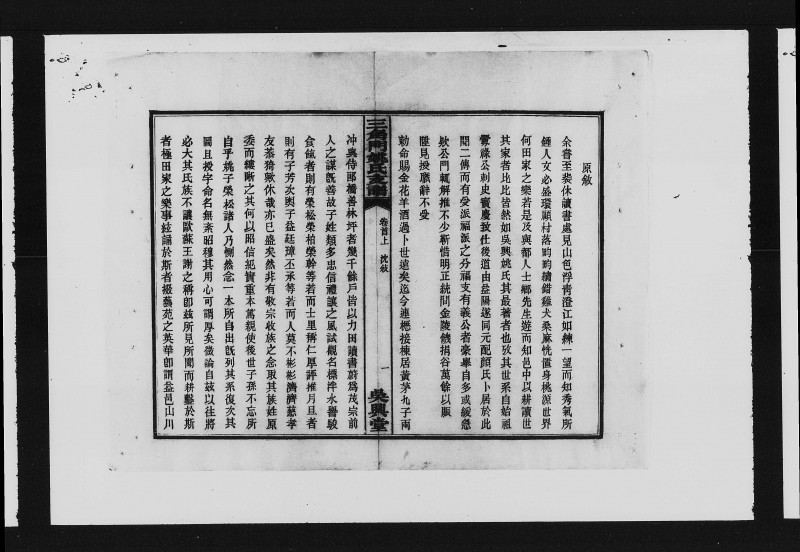 原敘
余嘗至裴休讀書處見山色浮青澄江如練一望而知秀氣所
鍾人文必盛環顧村落畇畇繡錯雞犬桑麻恍置身桃源世界
何田家之樂若是及與都人士鄉先生遊而知邑中以耕讀世
其家者比比皆然如吳興姚氏其最著者也攷其世系自始祖
公刺史賓慶致仕後道由益陽遂同元配顏氏卜居於此
閱二傳而有受派福派之分福支有義公者豪舉自多或緩急
欵公門輒解推不少靳惜明正統間金陵饑捐谷萬餘以賑
匯見授職辭不受
勅命賜金花羊酒過卜世遠矣迄今連甍接棟居黃茅九子兩
三堂
姚氏支譜
卷首上
沈敘
一
吳興堂
冲與侍郎橋善林坪者幾千餘戶皆以力田讀書蔚爲茂宗前
人之謀既善故子姓類多忠信禮讓之風試觀名標泮水譽駿
食餼者則有榮松榮柏榮幹等若而士里稱仁厚評推月旦者
則有子芳次輿子益廷璋丕承等若而人莫不彬彬濟濟慈孝
友恭猗歟休哉亦已盛矣然非有敬宗收族之念取其族姓原
委而縷晰之其何以昭信紀實重本篤親使後世子孫不忘所
自乎姚子榮松諸人乃惻然念一本所自出既列其系復次其
圖且授字命名無紊昭穆其用心可謂厚矣徵論自茲以往將
必大其氏族不讓歐蘇王謝之稱卽茲所見所聞而耕鑿於斯
者極田家之樂事絃誦於斯者掇藝苑之英華卽謂益邑山川